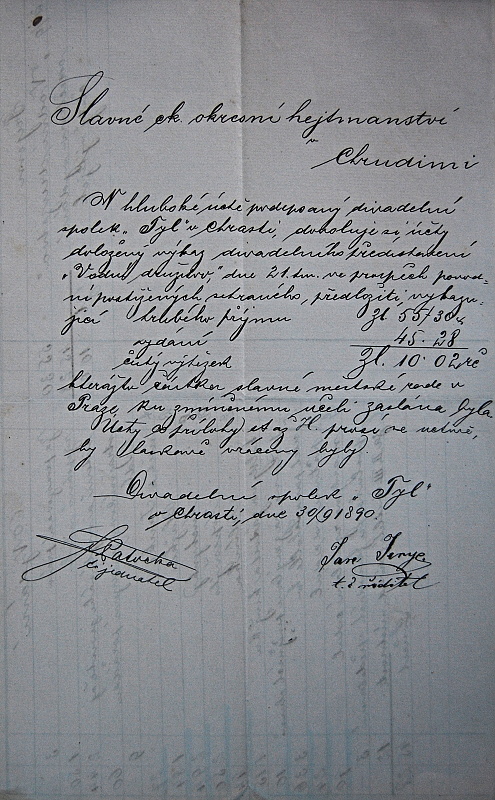 Slavné ck. okresní hejtmanství
v
Chrudimi
V hluboké úctě podepsaný divadelní
spolek „Tyl“ v Chrasti, dovoluje si, účty
doložený výkaz divadelního představení
„Vodní družstvo“ dne 21. t.m. ve prospěch povod-
ní postižených sehraného, předložiti, vykazu-
jící hrubého příjmu Zl. 55·30
vydání 45·28
čistý výtěžek Zl. 10·02 rč
kterážto částka slavné městské radě v
Praze, ku zmíněnému účeli zaslána byla.
Účty co přílohy až H prosí se uctivě,
by laskavě vráceny byly.
Divadelní spolek „Tyl“
v Chrasti, dne 30/9 1890.
Patočka
jednatel
Jar.
t. č. ředitel